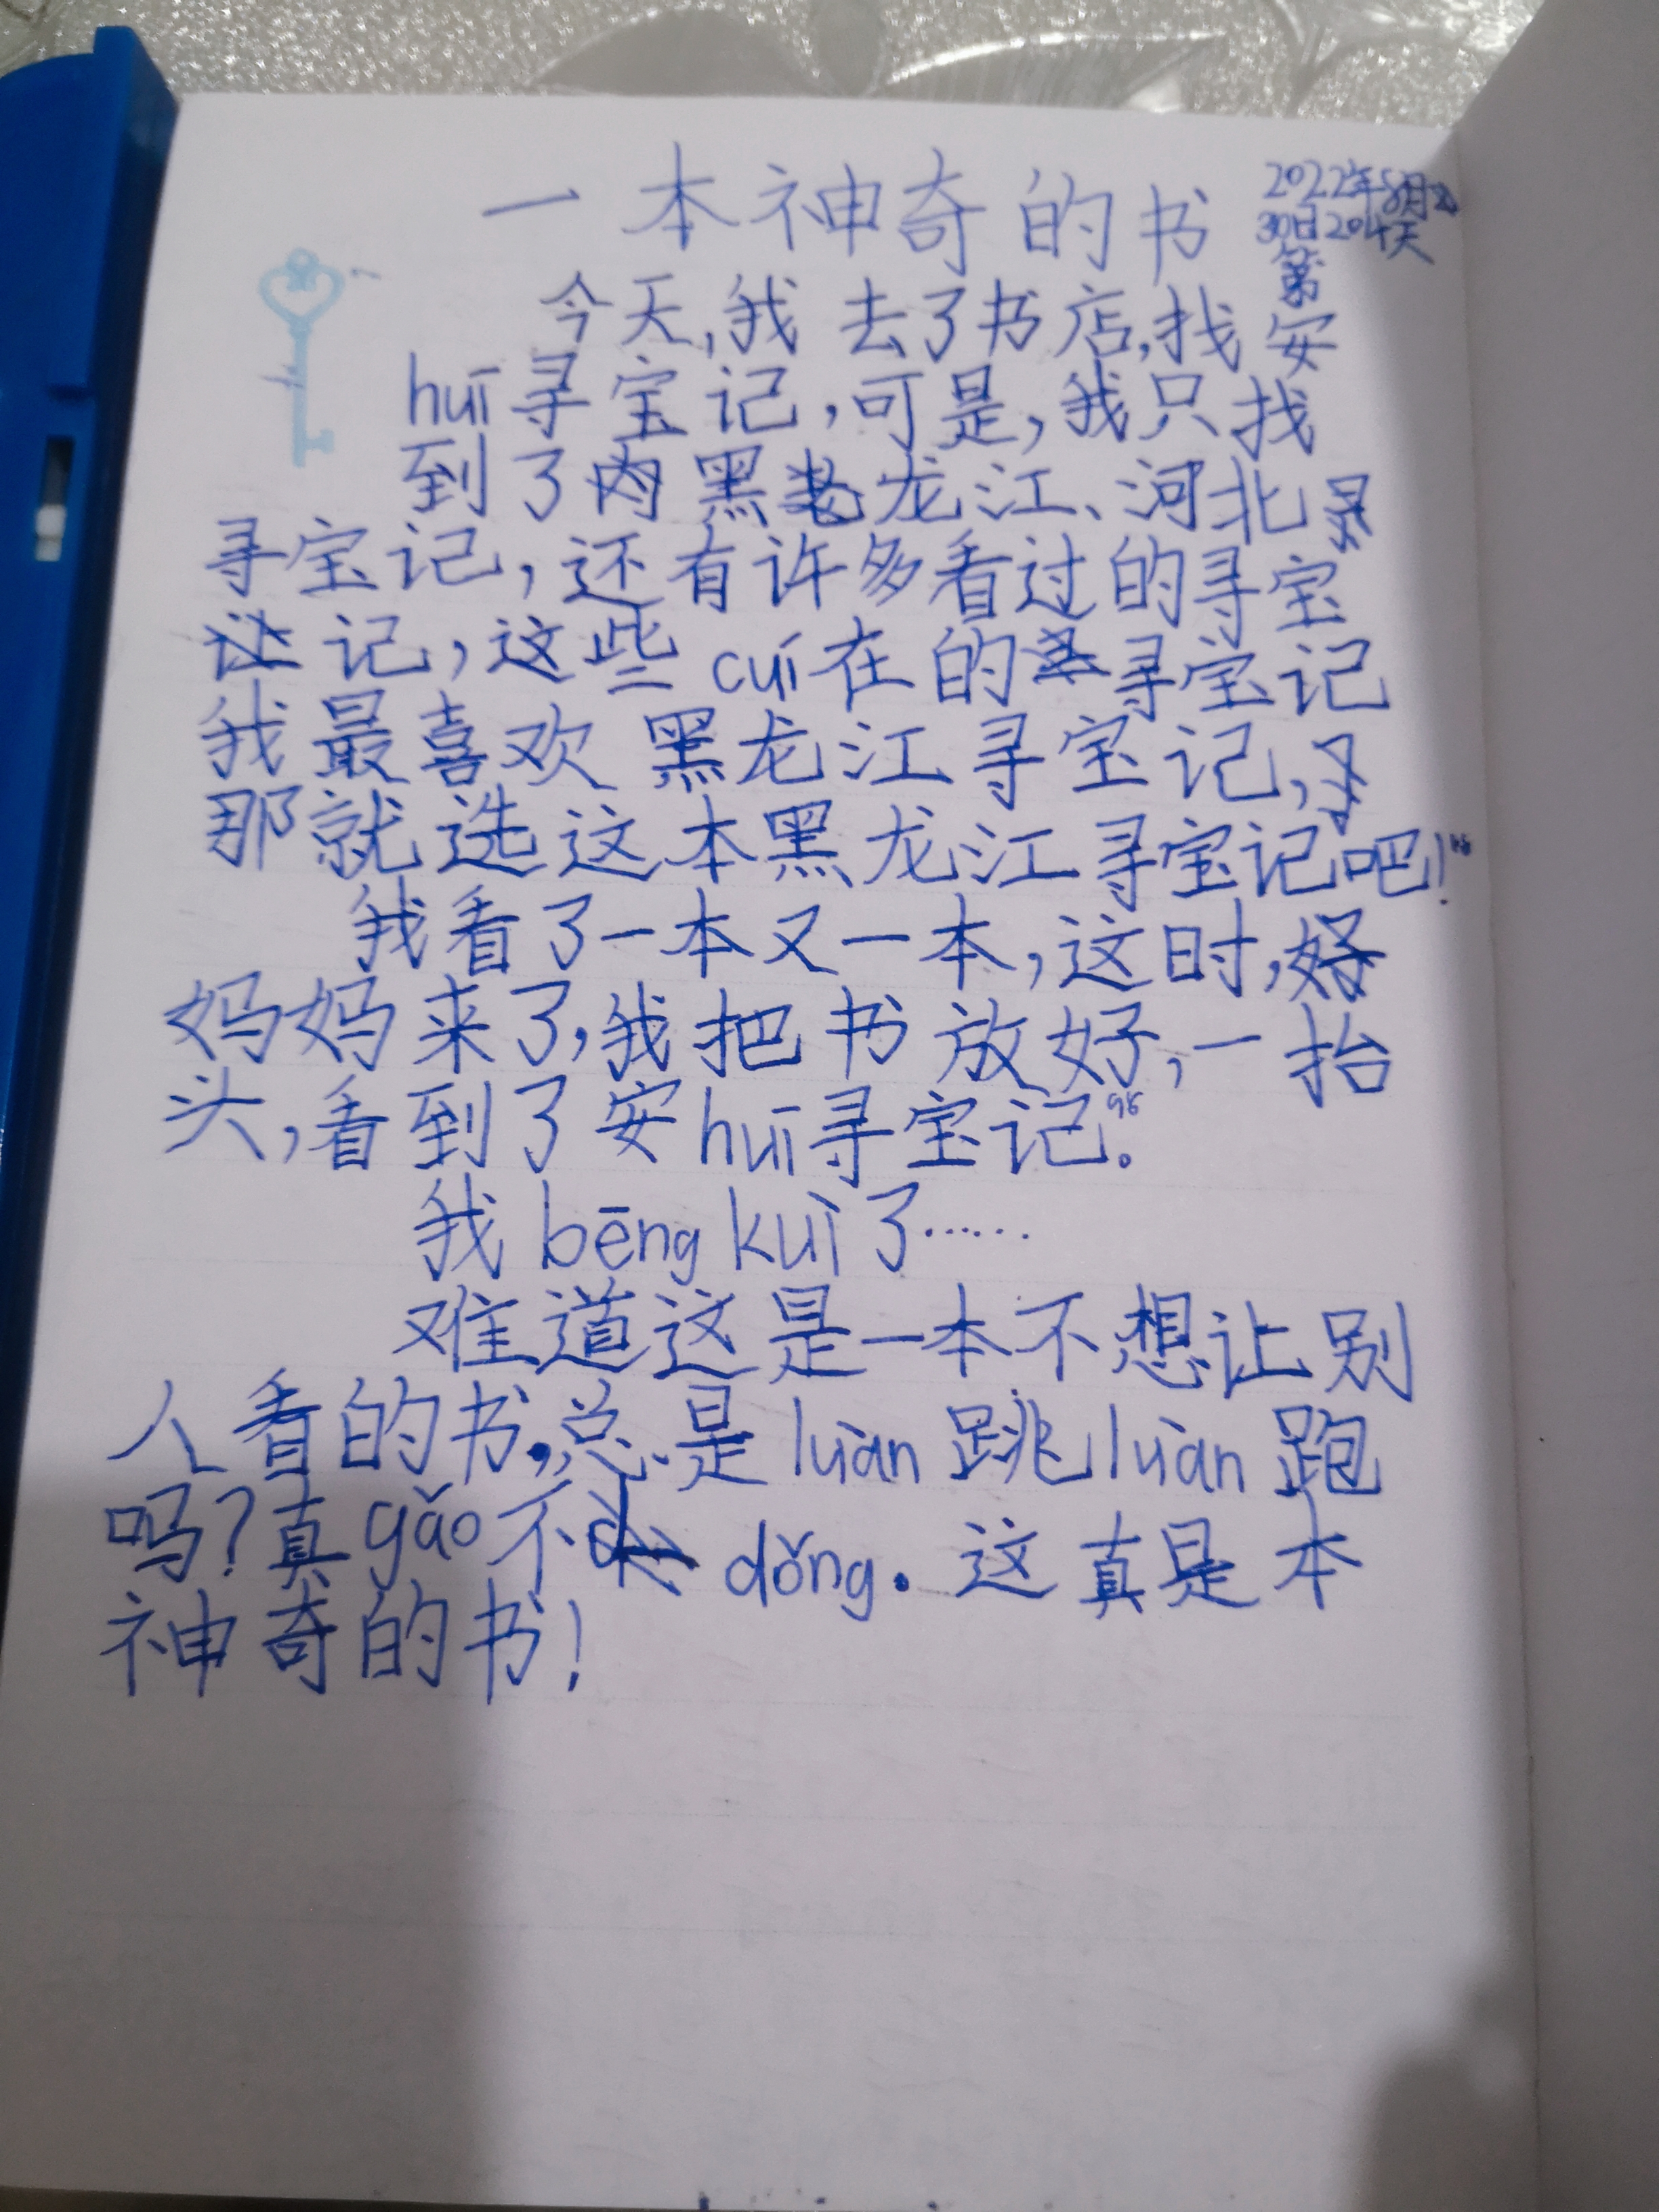 一本神奇的书
2022年8月
30日204天
第
今天,我去了书店,找安
huī寻宝记,可是,我只找
到了黑龙江、河北
寻宝记,还有许多看过的寻宝
记,这些cuí在的寻宝记
我最喜欢黑龙江寻宝记,
那就选这本黑龙江寻宝记吧!
我看了一本又一本,这时,
妈妈来了,我把书放好,一抬
头,看到了安huī寻宝记。
我bēng kuì了……
难道这是一本不想让别
人看的书,总是luàn跳luàn跑
吗?真gǎo不dǒng.这真是本
神奇的书!